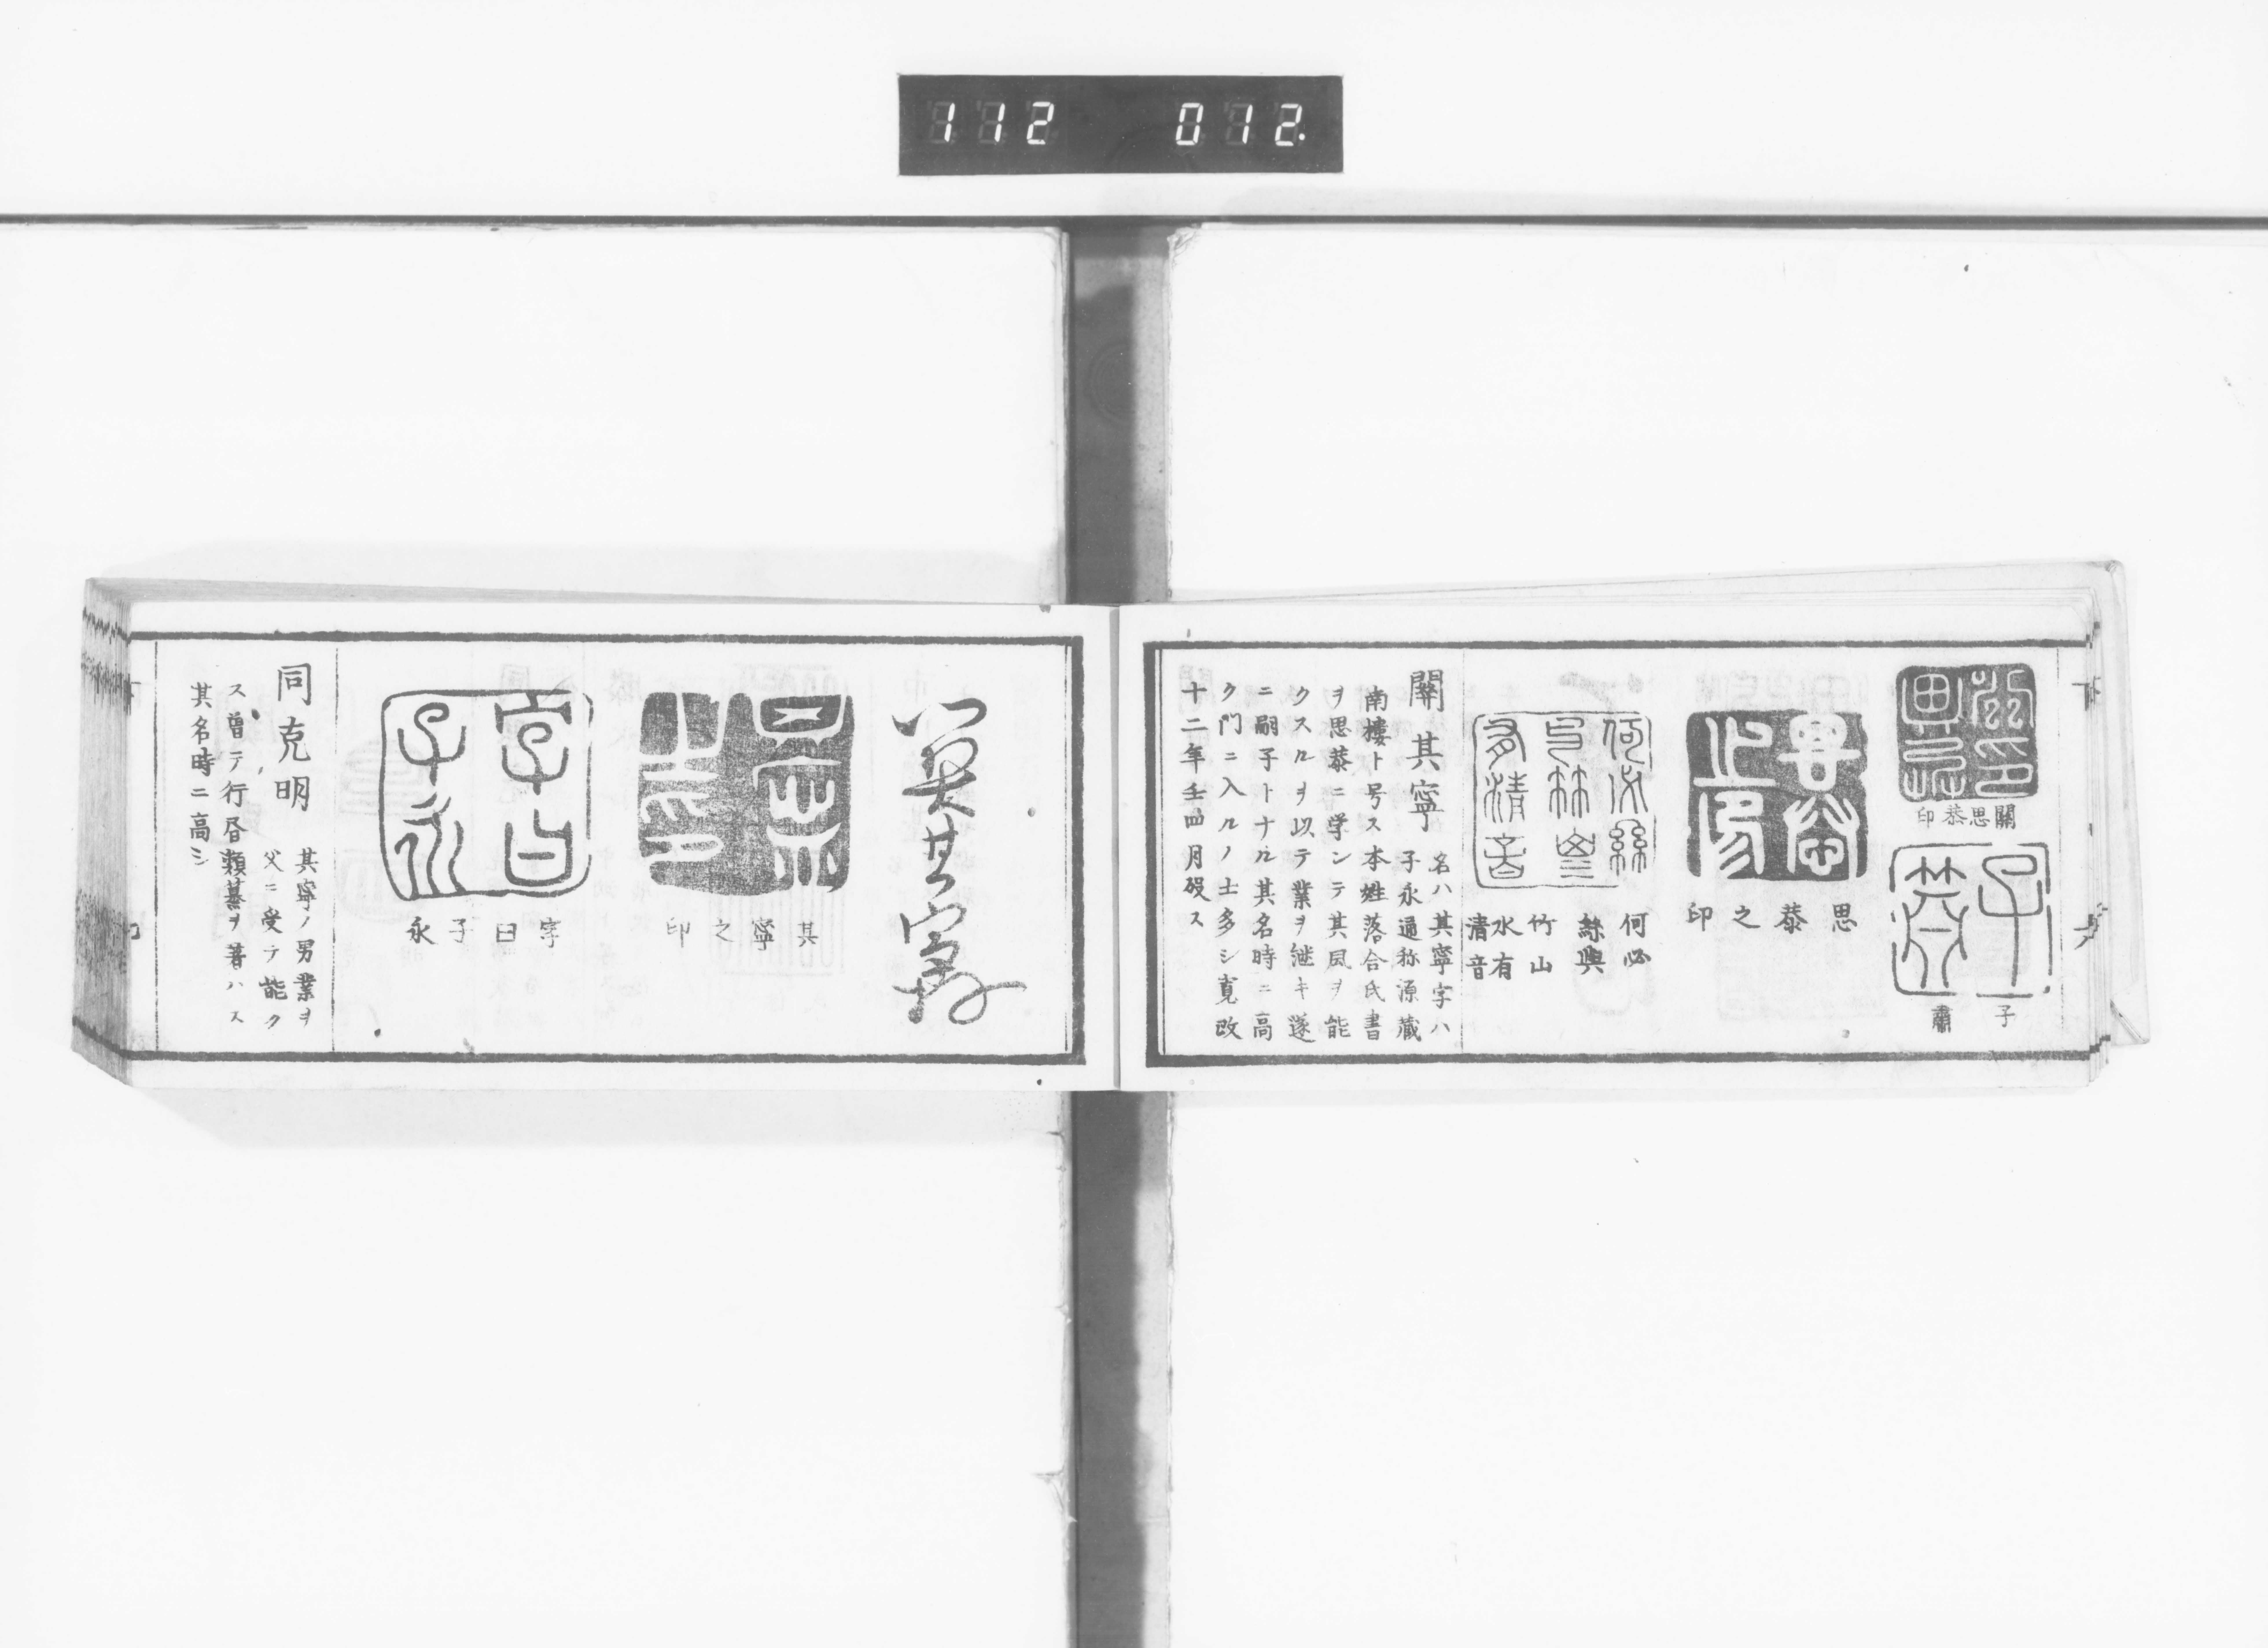 112 012.
關思恭印
子
肅
思恭之印
何必
絲與
竹山
水有
清音
關其寧
名ハ其寧字ハ
子永通称源藏
南樓ト号ス本姓落合氏書
ヲ思恭ニ学ンテ其風ヲ能
クスルヲ以テ業ヲ継キ遂
ニ嗣子トナル其名時ニ高
ク門ニ入ルノ士多シ寛政
十二年四月歿ス
其寧之印
字曰子永
同克明
其寧ノ男業ヲ
父ニ受テ能ク
ス曽テ行書類纂ヲ著ハス
其名時ニ高シ